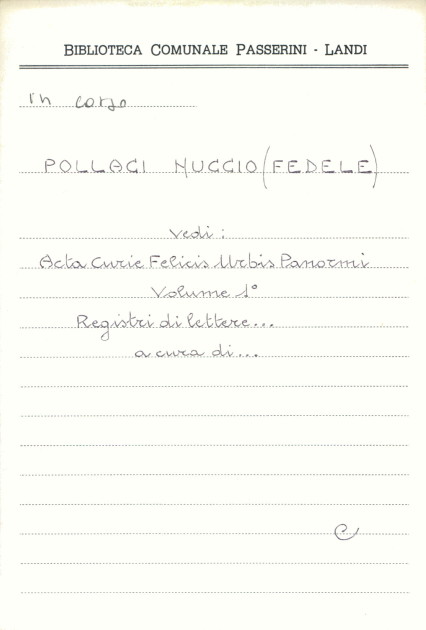 BIBLIOTECA COMUNALE PASSERINI - LANDI
in corso
POLLACI NUCCIO (FEDELE)
Vedi:
Acta Curie Felicis Urbis Panormi
Volume 1°
Registri di lettere...
a cura di...
C